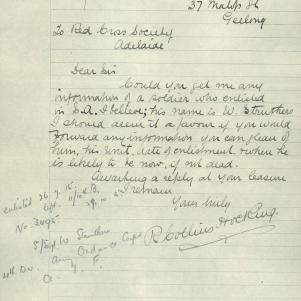 37 Malop St
Geelong
To Red Cross Society
Adelaide
Dear Sir
Could you get me any
information of a soldier who enlisted
in S.A. I believe; his name is W. Struthers
I should deem it a favour if you would
forward any information you can glean of
him, his unit, date of enlistment & where he
is likely to be now, if not dead.
Awaiting a reply at your leisure
I remain
Yours truly
R Collins Hocking
enlisted 26.7.15
No.
S/Sgt W Struthers
Army Ordance Corps
4th Div.